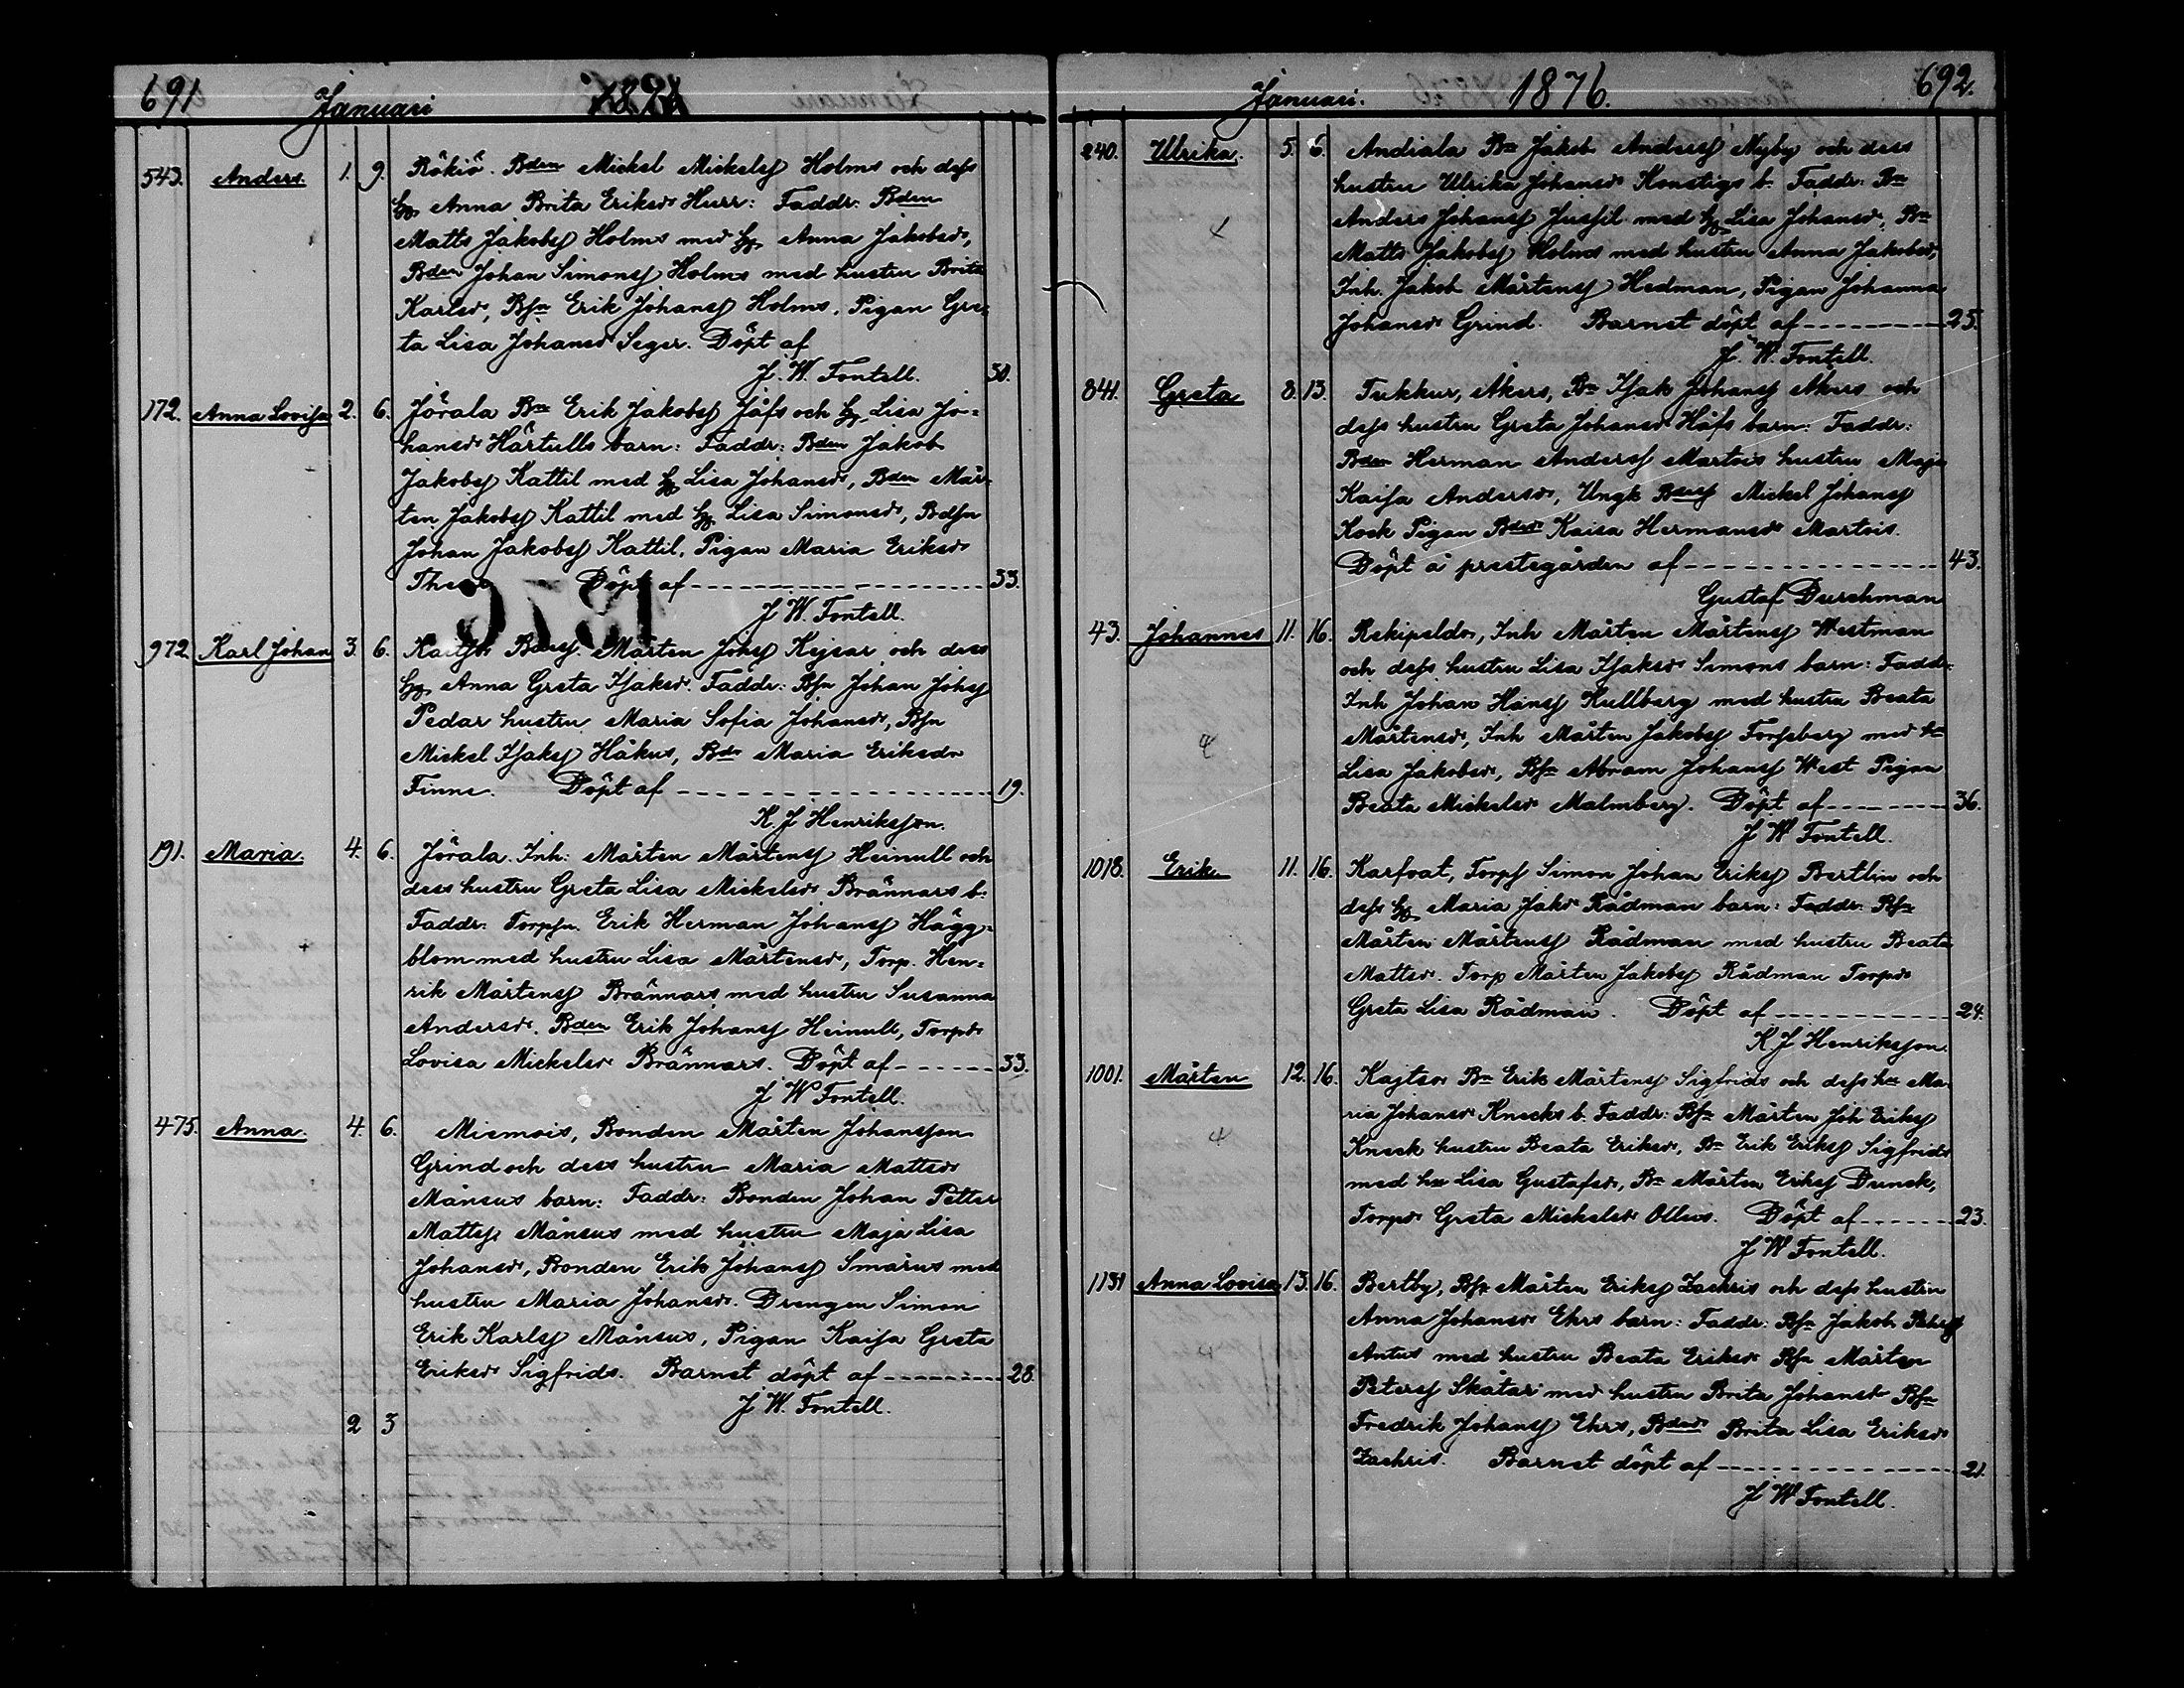 691 Januari
543. Anders. 1. 9. Rökiö. Bden Mickel Mickelss Holms och dess
h. Anna Brita Eriksdr Hurr: Faddr: Bden
Matts Jakobss Holms med h. Anna Jakobsdr,
Bden Johan Simonss Holms med hustru Brita
Karlsdr, Bsn Erik Johanss Holms. Pigan Gre-
ta Lisa Johansdr Seger. Döpt af
J. W. Fontell. 30.
172. Anna Lovisa 2. 6. Jörala Bn Erik Jakobss Jåfs och h. Lisa Jo-
hansdr Härtulls barn: Faddr: Bden Jakob
Jakobss Kattil med h. Lisa Johansdr, Bden Mår-
ten Jakobss Kattil med h. Lisa Simonsdr, Bdsn
Johan Jakobss Kattil, Pigan Maria Eriksdr
Döpt af 33.
J W. Fontell.
1876
972. Karl Johan 3. 6. Kaitsor Bdess Mårten Johss Kejsar och dess
h. Anna Greta Isaksdr. Faddr: Bsn Johan Johss
Pedar hustru Maria Sofia Johansdr, Bsn
Mickel Isakss Håkus, Bdr Maria Eriksdr
Finne. Döpt af 19.
K. J Henriksson.
191. Maria. 4. 6. Jörala. Inh: Mårten Mårtenss Heinull och
dess hustru Greta Lisa Mickelsdr Brännars b.
Faddr: Torpsn. Erik Herman Johanss Hägg-
blom med hustru Lisa Mårtensdr, Torp. Hen-
rik Mårtenss Brännars med hustru Susanna
Andersdr. Bden Erik Johanss Heinull, Torpdr
Lovisa Mickelsdr Brännars. Döpt af 33.
J W Fontell.
475. Anna. 4. 6. Miemois, Bonden Mårten Johansson
Grind och dess hustru Maria Mattsdr
Månsus barn: Faddr: Bonden Johan Petter
Mattss Månsus med hustru Maja Lisa
Johansdr, Bonden Erik Johanss Smärus med
hustru Maria Johansdr. Drengen Simon
Erik Karlss Månsus, Pigan Kaisa Greta
Eriksdr Sigfrids. Barnet döpt af 28.
J W. Fontell.
2 3
Januari. 1876. 692.
240. Ulrika. 5. 6. Andiala Bn Jakob Anderss Myby och dess
hustru Ulrika Johansdr Konstigs b. Faddr: Bn
Anders Johanss Jussil med h. Lisa Johansdr, Bn
Matts Jakobss Holms med hustru Anna Jakobsdr,
Inh. Jakob Mårtenss Hedman, Pigan Johanna
Johansdr Grind. Barnet döpt af 25.
J. W. Fontell.
841. Greta 8. 13. Tukkur, Åkers, Bn Isak Johanss Åkers och
dess hustru Greta Johansdr Håfs barn: Faddr:
Bden Herman Anderss Martois hustru Maja
Kaisa Andersdr, Ungk Bdess Mickel Johanss
Kock Pigan Bdedr Kaisa Hermansdr Martois.
Döpt å prestegården af 43.
Gustaf Durchman
43. Johannes 11. 16. Rekipeldo, Inh Mårten Mårtenss Westman
och dess hustru Lisa Isaksdr Simons barn: Faddr:
Inh Johan Hanss Kullberg med hustru Beata
Mårtensdr, Inh Mårten Jakobss Forssberg med h
Lisa Jakobsdr, Bsn Abram Johanss West Pigan
Beata Mickelsdr Malmberg. Döpt af 36.
J W Fontell.
1018. Erik 11. 16. Karfvat, Torps Simon Johan Erikss Bertlin och
dess h. Maria Jaksdr Rådman barn: Faddr: Bsn
Mårten Mårtenss Rådman med hustru Beata
Mattsdr. Torp Mårten Jakobss Rådman Torpdr
Greta Lisa Rådman. Döpt af 24.
K. J Henriksson.
1001. Mårten 12. 16. Kajtsor Bn Erik Mårtenss Sigfrids och dess hu Ma-
ria Johansdr Knecks b. Faddr: Bsn Mårten Joh Erikss
Kneck hustru Beata Eriksdr, Bn Erik Erikss Sigfrids
med hu Lisa Gustafsdr, Bn Mårten Erikss Dunck,
Torpdr Greta Mickelsdr Ollus. Döpt af 23.
J W Fontell.
1131 Anna Lovisa 13. 16. Bertby, Bsn Mårten Erikss Zachris och dess hustru
Anna Johansdr Ehrs barn: Faddr: Bsn Jakob
Antus med hustru Beata Eriksdr Bsn Mårten
Peterss Skåtar med hustru Brita Johansdr Bsn
Fredrik Johanss Ehrs, Bdedr Brita Lisa Eriksdr
Zachris. Barnet döpt af 21.
J W Fontell.